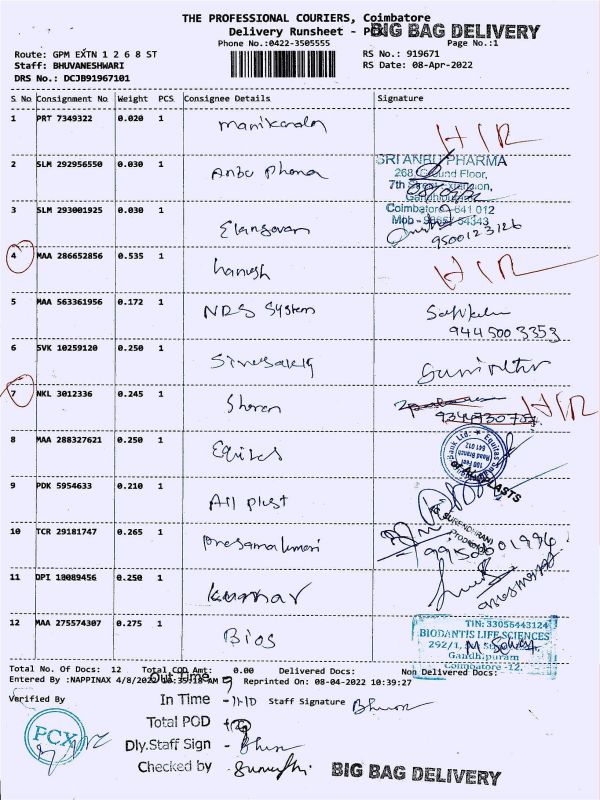 THE PROFESSIONAL COURIERS, Coimbatore
Delivery Runsheet - PCX
BIG BAG DELIVERY
Phone No.:0422-3505555
Page No.:1
Route: GPM EXTN 1 2 6 8 ST
RS No.: 919671
Staff: BHUVANESHWARI
RS Date: 08-Apr-2022
DRS No.: DCJB91967101
S No Consignment No Weight PCS Consignee Details Signature
1 PRT 7349322 0.020 1 manikandan HIR
2 SLM 292956550 0.030 1 Anbu pharma
SRI ANBU PHARMA
268, Ground Floor,
7th Street Extension,
Gandhipuram
Coimbatore - 641 012
3 SLM 293001925 0.030 1 Elangovan
9500123126
4 MAA 286652856 0.535 1 HIR
5 MAA 563361956 0.172 1 NDS System
9445003353
6 SVK 10259120 0.250 1
7 NKL 3012336 0.245 1 Sharan HIR
8 MAA 288327621 0.250 1 Equitas
9 PDK 5954633 0.210 1 All plast
10 TCR 29181747 0.265 1
9950001996
11 DPI 10089456 0.250 1 kumar
12 MAA 275574307 0.275 1 Bios
TIN: 33056443124
BIODANTIS LIFE SCIENCES
292/1,
Gandhipuram
Coimbatore -12.
Total No. Of Docs: 12 Total COD Amt: 0.00 Delivered Docs: Non Delivered Docs:
Entered By :NAPPINAX 4/8/2022 AM Reprinted On: 08-04-2022 10:39:27
Out Time
Verified By
In Time - 11-10 Staff Signature Bhuvan
PCX
Total POD
Dly.Staff Sign - Bhuvan
Checked by - Sumathi
BIG BAG DELIVERY